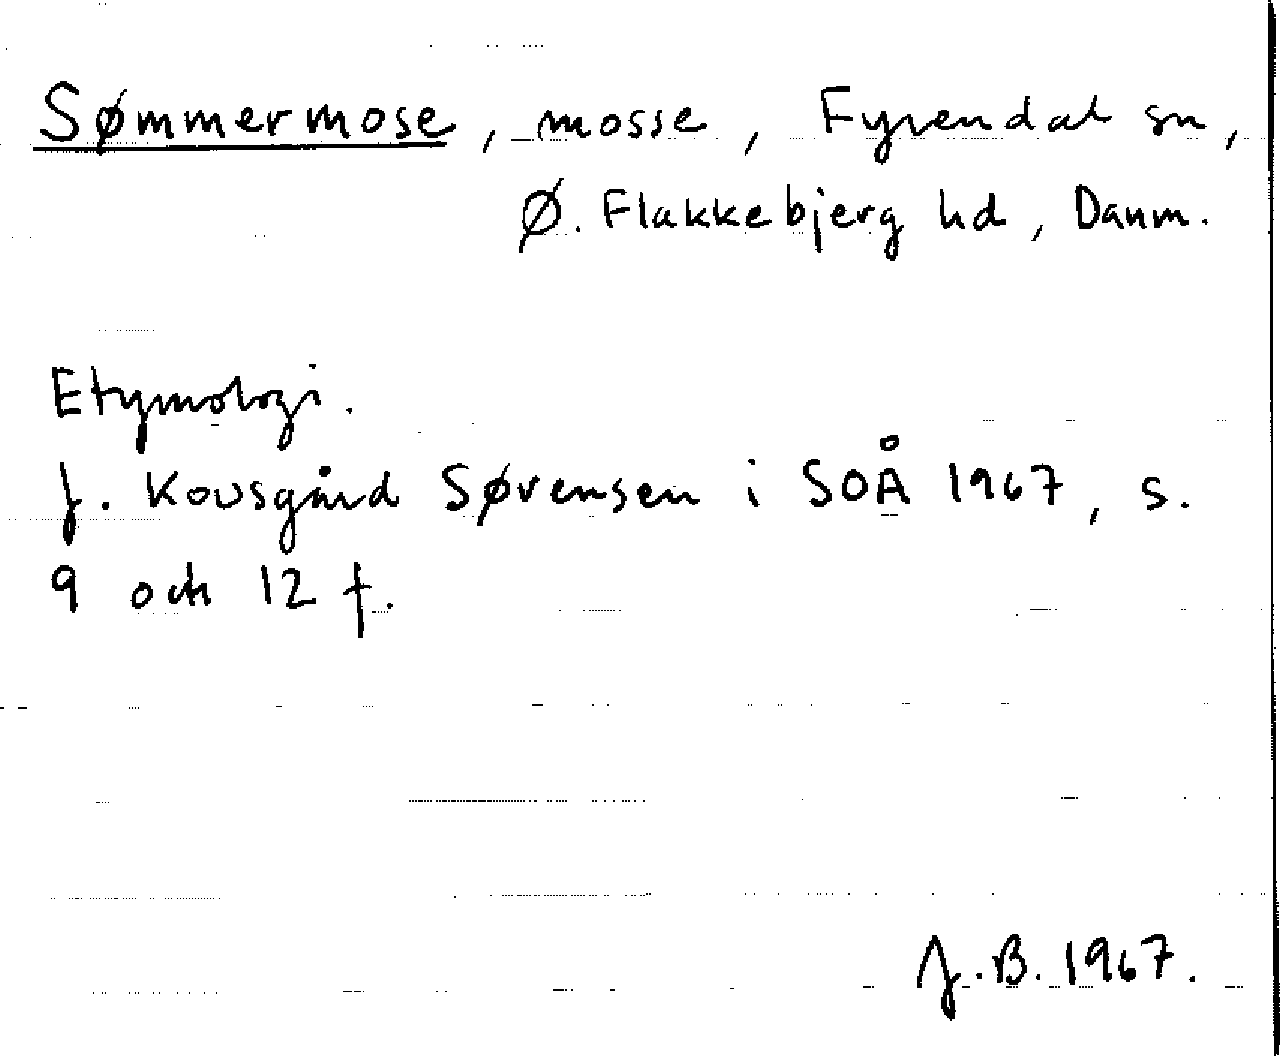 Sømmermose, mosse, Fyrendal sn,
Ø. Flakkebjerg hd, Danm.
Etymologi.
J. Kousgård Sørensen i SOÅ 1967, s.
9 och 12 f.
J.B. 1967.